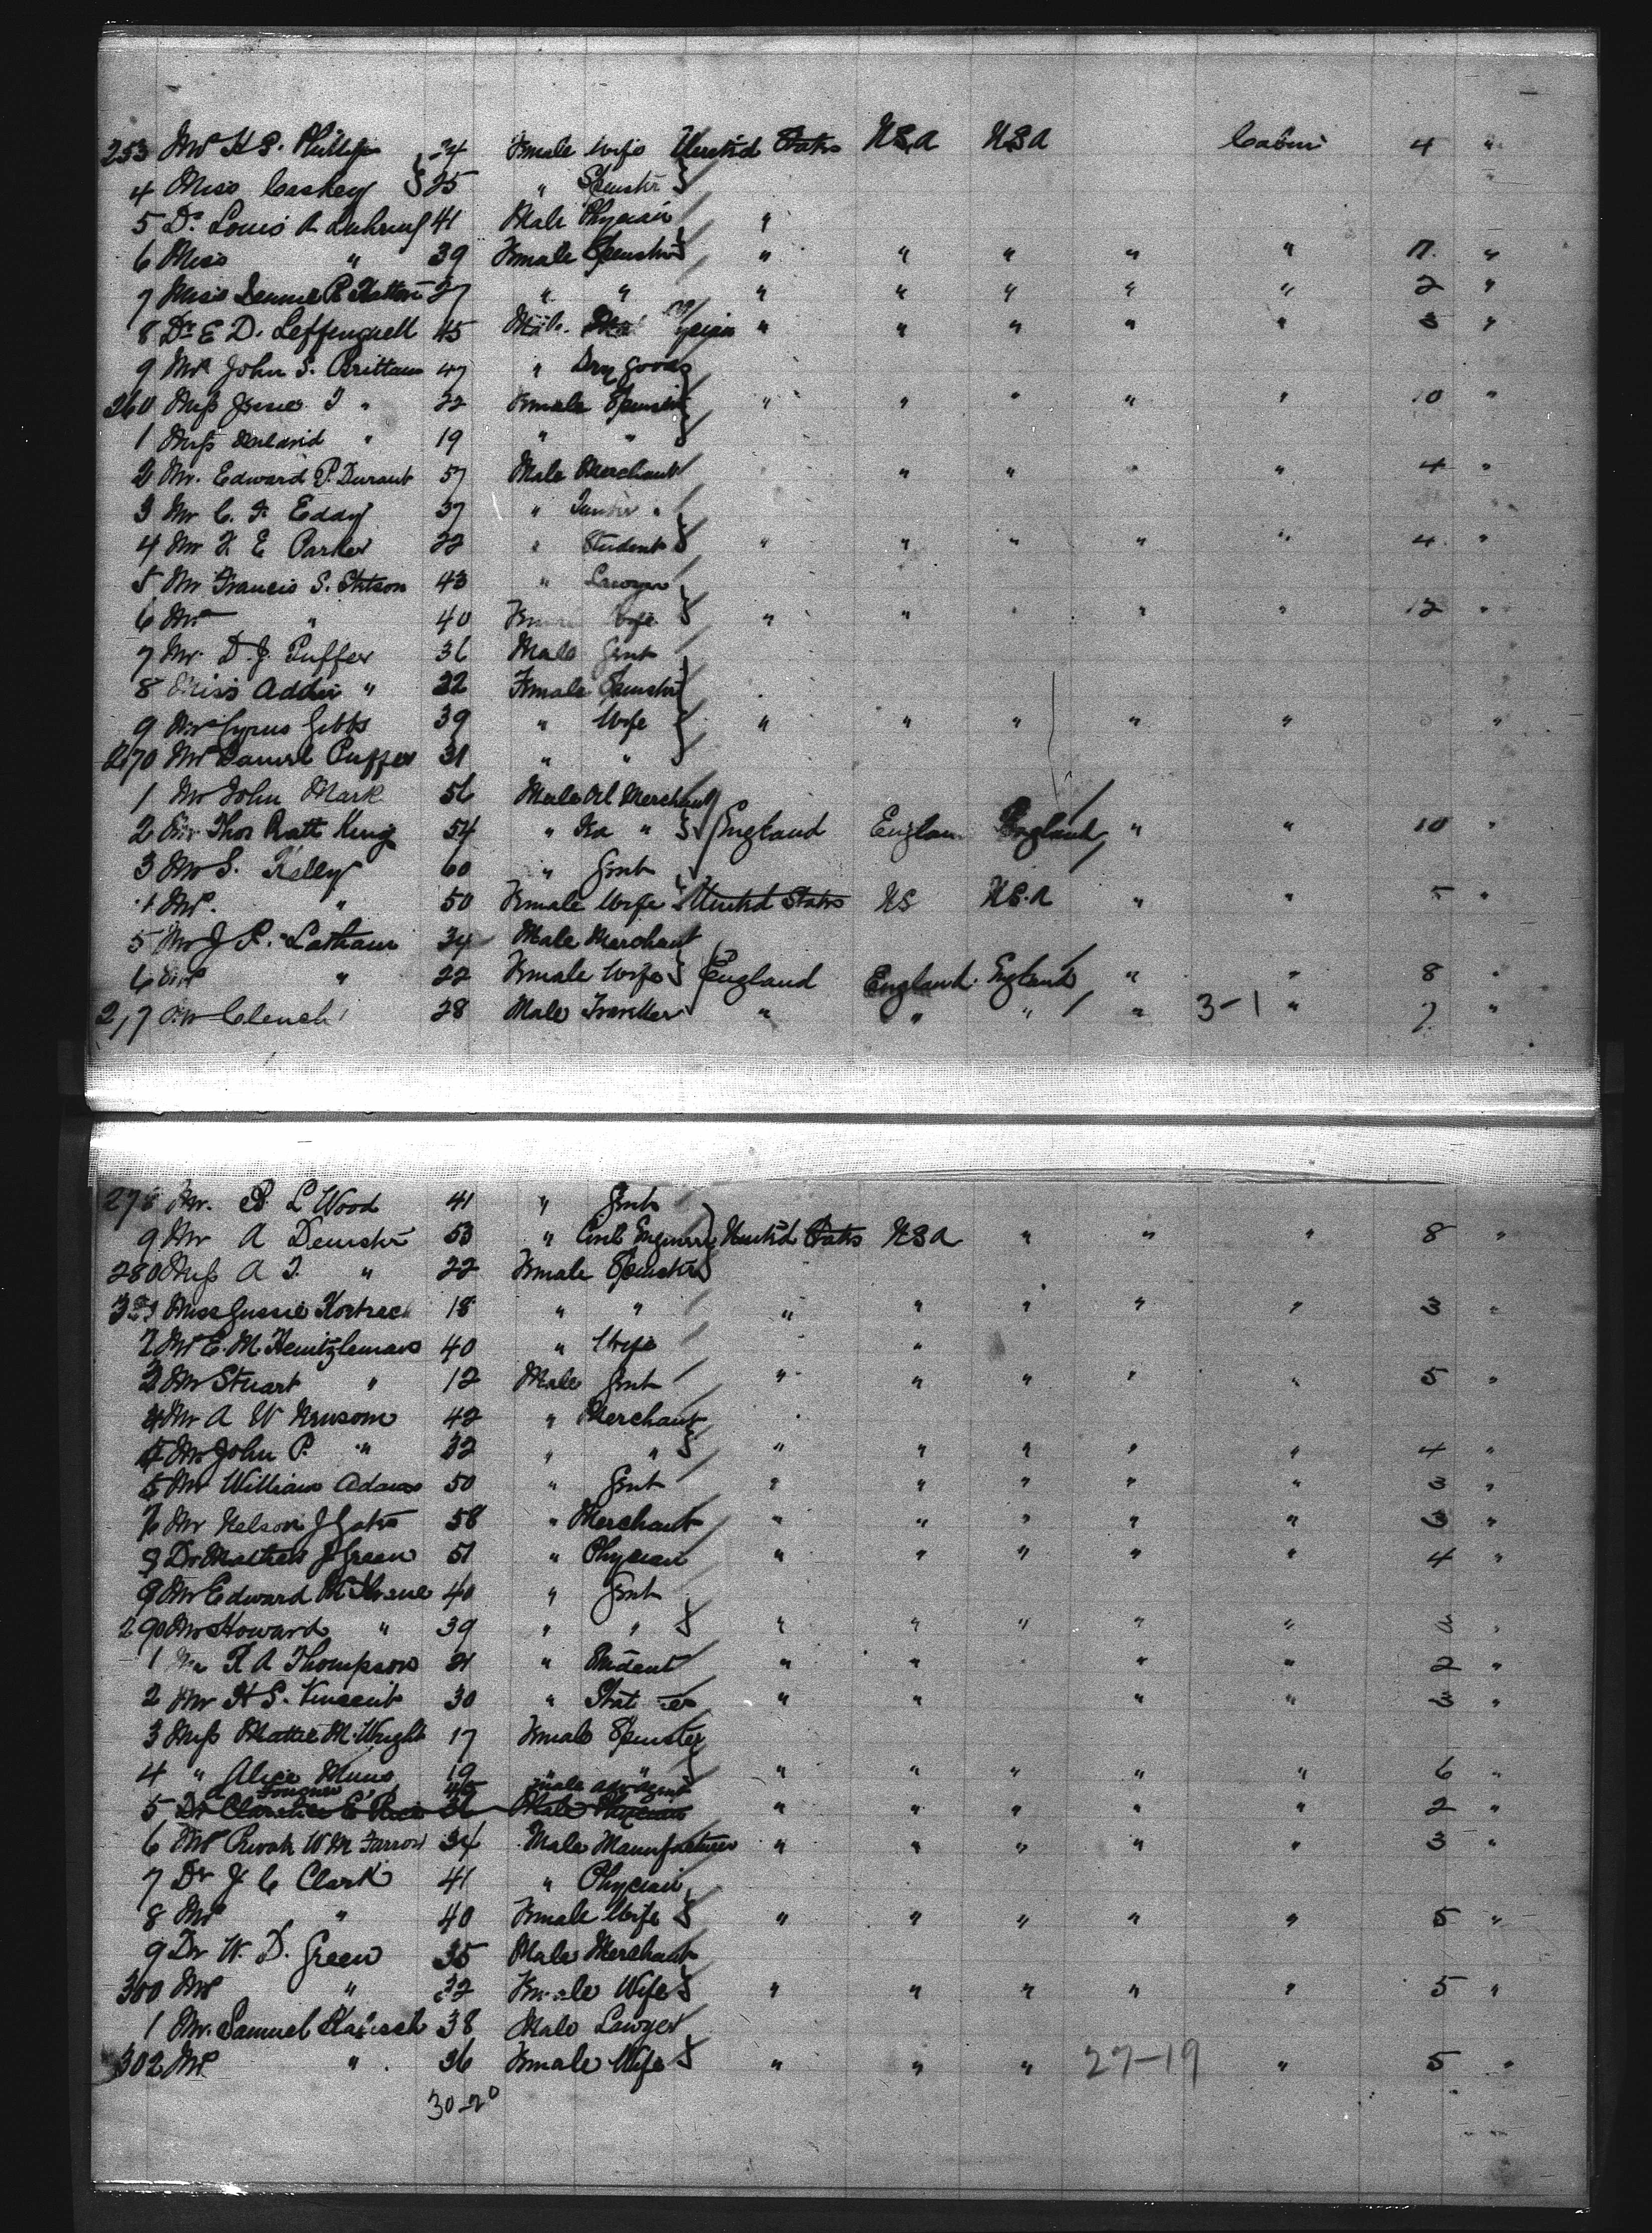 253 Mrs H S. Phillips 24 Female Wife United States USA USA Cabin 4 "
4 Miss Caskey 25 " Spinster "
5 Dr. Louis A 41 Male Physician "
6 Miss " 39 Female Spinster " " " " " 7. "
7 Miss 27 " " " " " " " 2 "
8 Dr E D. Leffingwell 45 Male Physician " " " " " 3 "
9 Mr John S. Brittain 47 " Dry Goods
260 Miss " 22 Female Spinster " " " " " 10 "
1 Miss " 19 " "
2 Mr. Edward P. Durant 57 Male Merchant " " " 4 "
3 Mr C. F. Eddy 37 " "
4 Mr F. E Parker 22 " Student " " " " " 4 "
5 Mr Francis S. Stetson 43 " Lawyer
6 Mrs " 40 Female Wife " " " " " 12 "
7 Mr. D. J. Puffer 36 Male Gent
8 Miss Addie " 22 Female Spinster
9 Mrs Cyrus Gibbs 39 " Wife " " " " " "
270 Mrs Daniel Puffer 31 " "
1 Mr John Mark 56 Male Oil Merchant
2 Mr Thos Ratt King 54 " Tea " England England England " " 10 "
3 Mr S. Kelly 60 " Gent
4 Mrs. " 50 Female Wife United States US U.S.A " " 5 "
5 Mr J. P. Latham 34 Male Merchant
6 Mrs " 22 Female Wife England England England " " 8 "
277 Mr Clench 28 Male Traveller " " " " 3-1 " 7 "
278 Mr. L Wood 41 " Gent
9 Mr A Dempster 53 " Civil Engineer United States USA " " " 8 "
280 Miss A J. " 22 Female Spinster
Miss Gussie 18 " " " " " " " 3 "
2 Mrs E. M. Heintzleman 40 " Wife "
3 Mr Stuart " 12 Male Gent " " " " " 5 "
4 Mr A W Newsom 42 " Merchant
5 Mr John P. " 32 " " " " " " " 4 "
Mr William Adams 50 " Gent " " " " " 3 "
Mr Nelson J Gates 58 " Merchant " " " " " 3 "
Dr Mathew J Green 51 " Physician " " " " " 4 "
9 Mr Edward 40 " Gent
290 Mr Howard " 39 " " " " " " " 3 "
1 Mr R A Thompson 21 " Student " " " " 2 "
2 Mr H S. Vincent 30 " " " " " 3 "
3 Miss Mattie M. Wright 17 Female Spinster
4 " Alice 19 " " " " " " 6 "
5 Dr Clarence E Male Physician " " " " " 2 "
6 W M Farrow 34 Male Manufacturer " " " " " 3 "
7 Dr J C Clark 41 " Physician
8 Mrs " 40 Female Wife " " " " " 5 "
9 Dr W. D. Green 35 Male Merchant
300 Mrs " 32 Female Wife " " " " " 5 "
1 Mr. Samuel Kalisch 38 Male Lawyer
302 Mrs " 36 Female Wife " " " 27-19 " 5 "
30-20